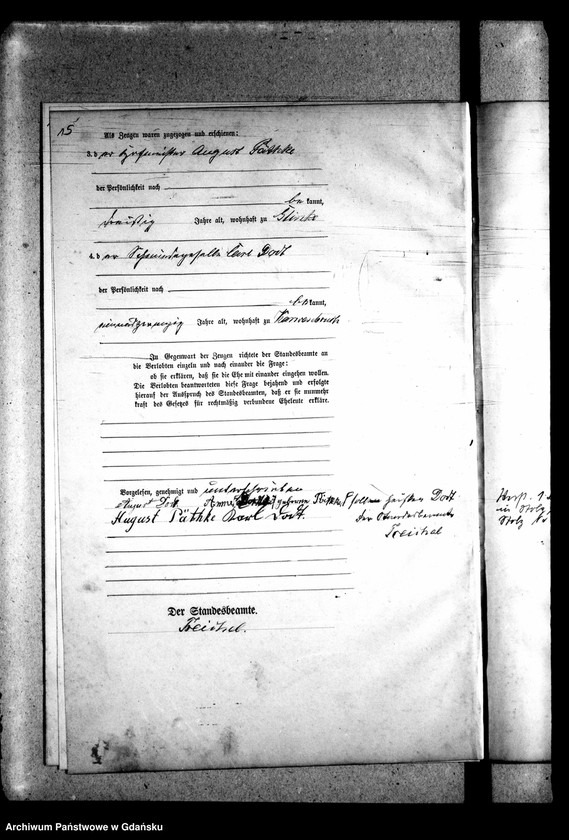 15
Als Zeugen waren zugezogen und erschienen:
3. der August Päthke
der Persönlichkeit nach
be kannt,
dreißig Jahre alt, wohnhaft zu
4. der Schmiedegeselle Carl Dodt
der Persönlichkeit nach
be kannt,
Jahre alt, wohnhaft zu
In Gegenwart der Zeugen richtete der Standesbeamte an
die Verlobten einzeln und nach einander die Frage:
ob sie erklären, daß sie die Ehe mit einander eingehen wollen.
Die Verlobten beantworteten diese Frage bejahend und erfolgte
hierauf der Ausspruch des Standesbeamten, daß er sie nunmehr
kraft des Gesetzes für rechtmäßig verbundene Eheleute erkläre.
Vorgelesen, genehmigt und unterschrieben
August Dodt geborene heißen Dodt
August Päthke Karl Dodt. Der Standesbeamte
Treichel
Der Standesbeamte.
Treichel.
in Stolp
Stolp
Archiwum Państwowe w Gdańsku